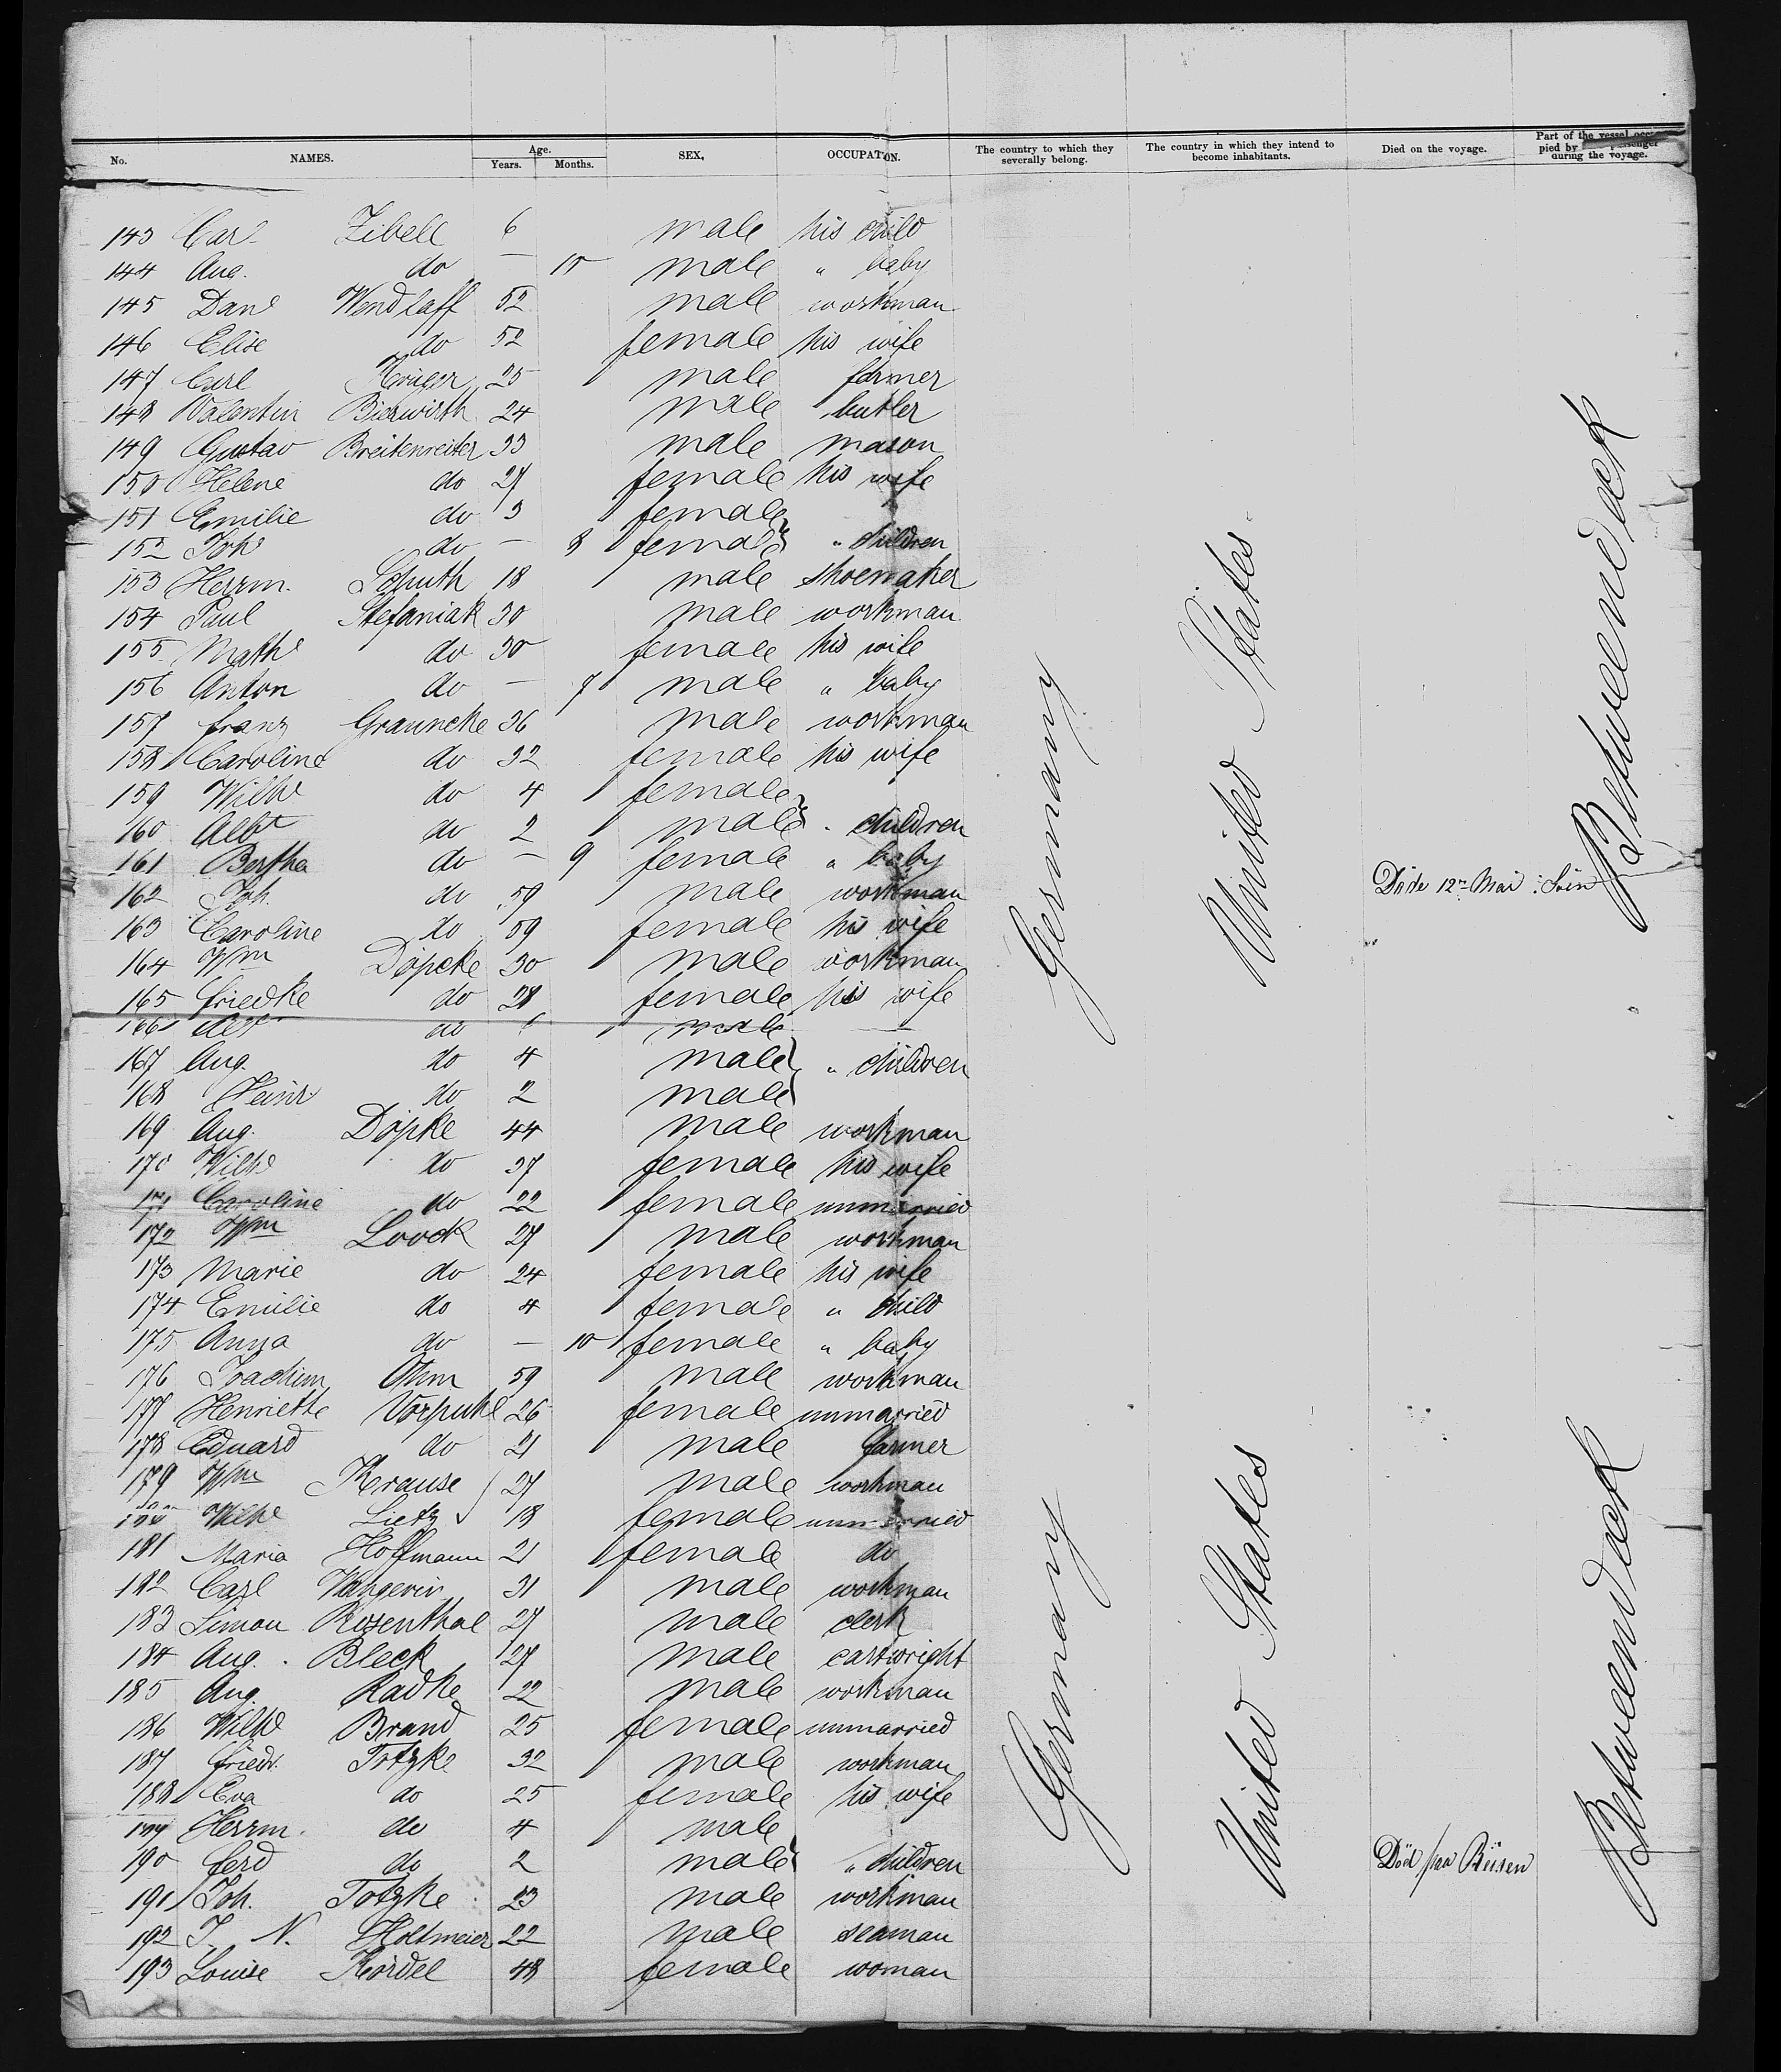 No. NAMES. Age. Years. Months. SEX. OCCUPATION. The country to which they severally belong. The country in which they intend to become inhabitants. Died on the voyage. Part of the vessel occupied by passenger during the voyage.
143 Carl Zibell 6 male his child
144 Aug. do — 10 male " baby
145 Danl Wendlaff 52 male workman
146 Elise do 52 female his wife
147 Carl Krüger 25 male farmer
148 Valentin Bierwirth 24 male butler
149 Gustav Breitenreiter 33 male mason
150 Helene do 27 female his wife
151 Emilie do 3 female
152 Joh do — 8 female " children
153 Herrm. Schuth 18 male shoemaker
154 Paul Stefaniak 30 male workman
155 Mathe do 30 female his wife
156 Anton do — 7 male " baby
157 Franz Grauncke 36 male workman
158 Caroline do 32 female his wife
159 Wilhe do 4 female
160 Albt do 2 male " children
161 Bertha do — 9 female " baby
162 Joh. do 59 male workman Dode 12 Mai
163 Caroline do 59 female his wife
164 Wm Döpcke 30 male workman
165 Friedke do 28 female his wife
166 Alb do 6 male
167 Aug. do 4 male " children
168 Heinr do 2 male
169 Aug. Döpke 44 male workman
170 Wilhe do 37 female his wife
171 Caroline do 22 female unmarried
172 Wm Loock 27 male workman
173 Marie do 24 female his wife
174 Emilie do 4 female " child
175 Anna do — 10 female " baby
176 Joachim Ohm 59 male workman
177 Henriette Vorpuhl 26 female unmarried
178 Eduard do 21 male farmer
179 Wm Krause 27 male workman
180 Wilhe Lietz 18 female unmarried
181 Maria Hoffmann 21 female do
182 Carl Wangerin 31 male workman
183 Simon Rosenthal 27 male clerk
184 Aug. Bleck 27 male cartwright
185 Aug. Radke 22 male workman
186 Wilhe Brand 25 female unmarried
187 Friedr. Totzke 32 male workman
188 Eva do 25 female his wife
189 Herrm. do 4 male
190 Ferd do 2 male " children Död paa Reisen
191 Joh. Totzke 23 male workman
192 J. N. Holtmeier 22 male seaman
193 Louise Kördel 48 female woman
Germany
United States
Betweendeck
Germany
United States
Betweendeck